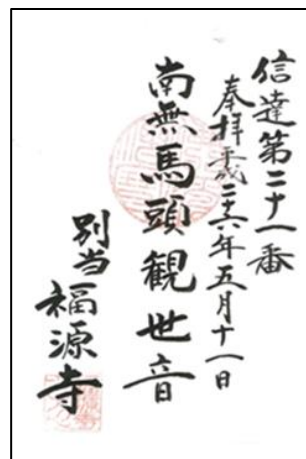 信達第二十一番
奉拝平成二十六年五月十一日
南無馬頭観世音
別当福源寺